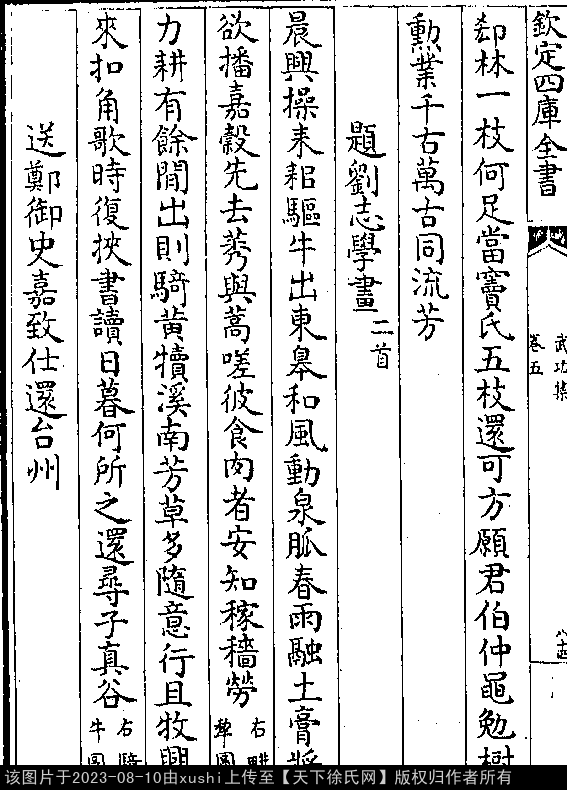 欽定四庫全書
武功集
卷五
郄林一枝何足當竇氏五枝還可方願君伯仲黽勉樹
勲業千古萬古同流芳
題劉志學畫二首
晨興操耒耜驅牛出東臯和風動泉脈春雨融土膏將
欲播嘉穀先去莠與蒿嗟彼食肉者安知稼穡勞右耕犂圖
力耕有餘閒出則騎黃犢溪南芳草多隨意行且牧興
來扣角歌時復挾書讀日暮何所之還尋子真谷右騎牛圖
送鄭御史嘉致仕還台州
该图片于2023-08-10由xushi上传至【天下徐氏网】版权归作者所有